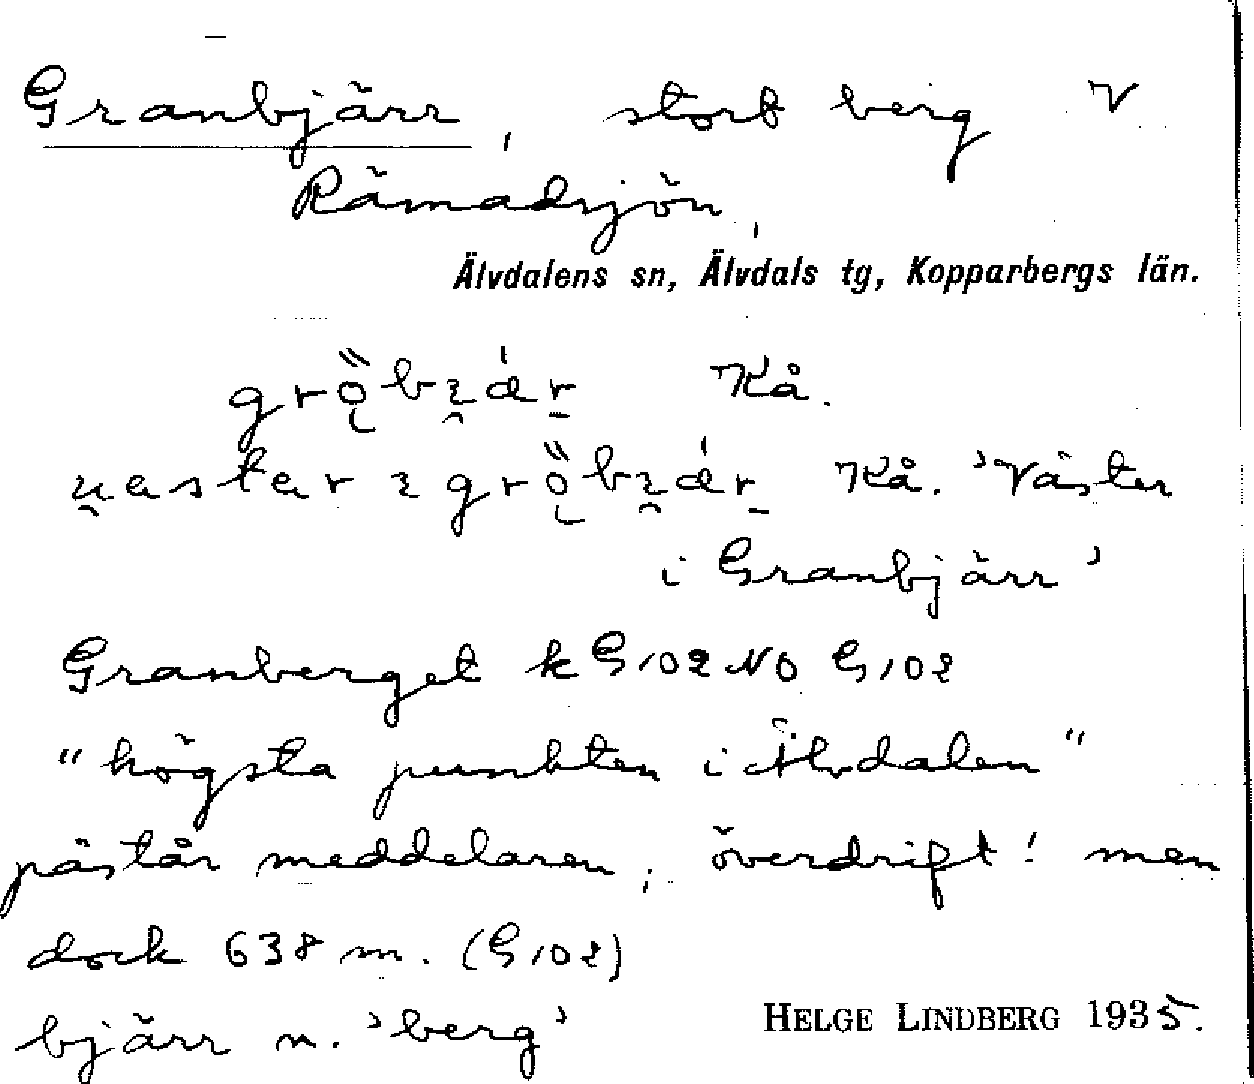 Granbjärr, stort berg V
Råmadsjön,
Älvdalens sn, Älvdals tg, Kopparbergs län.
Kå.
Kå. 'Väster
i Granbjärr'
Granberget k G102 NO G102
"högsta punkten i Älvdalen"
påstår meddelaren; överdrift! men
dock 638 m. (G102)
bjärr n. 'berg'
HELGE LINDBERG 1935.